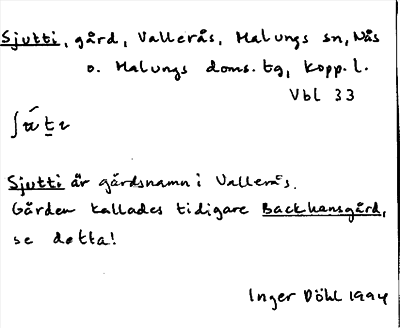 Sjutti, gård, Vallerås, Malungs sn, Nås
o. Malungs doms. tg, Kopp. l.
Vbl 33
Sjutti är gårdsnamn i Vallerås.
Gården kallades tidigare Backhansgård,
se detta!
Inger Döhl 1994